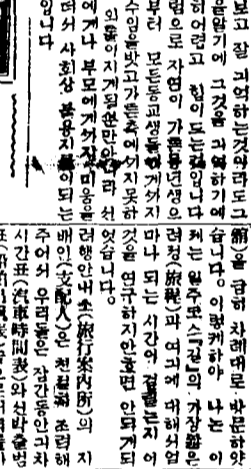 보고 잘 긔억하는것이라도그
을알기에 그것을 긔억하기에
히어렵고 힘이드는것입니다
럼으로 자연이 가튼동년생으
부터 모든동교생들에게까지
수임을밧고가튼축에끼지못하
외톨이지게될뿐만안이라 선
에게나 부모에게까지미움을
더러 사회상 불용지물이되는
입니다
館)을 급히 차례대로 방문하엿
습니다. 이럿케하야 나는 이
께는 일주코스『길』의 가장짧은
려정(旅程)과 여긔에 대해서얼
마나 되는 시간이 걸릴는지 어
것을 연구하지안흐면 안되게되
엇습니다.
려행안내소(旅行案内所)의 지
배인(支配人)은 친절히 조력해
주어서 우리들은 잠간동안긔차
시간표(汽車時間表)와선박출범